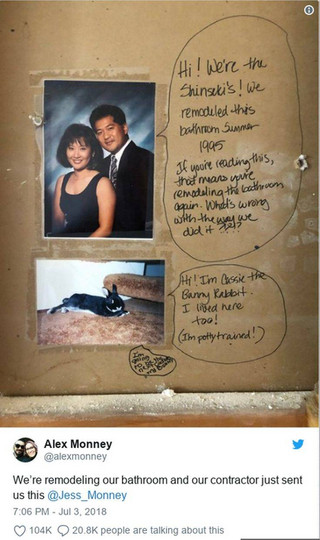 Hi! We're the
Shinseki's! We
remodeled this
bathroom Summer
1995
If you're reading this,
that means you're
remodeling the bathroom
again. What's wrong
with the way we
did it ?!?!?
Hi! I'm Cassie the
Bunny Rabbit.
I lived here
too!
(I'm potty trained!)
Alex Monney
@alexmonney
We're remodeling our bathroom and our contractor just sent
us this @Jess_Monney
7:06 PM - Jul 3, 2018
104K 20.8K people are talking about this